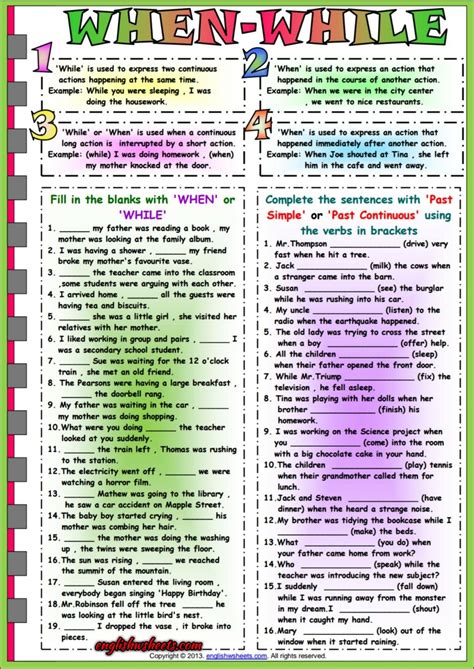 WHEN-WHILE
1
'While' is used to express two continuous
actions happening at the same time.
Example: While you were sleeping , I was
doing the housework.
2
'When' is used to express an action that
happened in the course of another action.
Example: When we were in the city center
, we went to nice restaurants.
3
'While' or 'When' is used when a continuous
long action is interrupted by a short action.
Example: (while) I was doing homework , (when)
my mother knocked at the door.
4
'When' is used to express an action that
happened immediately after another action.
Example: When Joe shouted at Tina , she left
him in the cafe and went away.
Fill in the blanks with 'WHEN' or
'WHILE'
1. _____ my father was reading a book , my
mother was looking at the family album.
2. I was having a shower , ______ my friend
broke my mother's favourite vase.
3. _____ the teacher came into the classroom
,some students were arguing with each other.
4. I arrived home , _____ all the guests were
having tea and biscuits.
5. _____ she was a little girl , she visited her
relatives with her mother.
6. I liked working in group and pairs , _____ I
was a secondary school student.
7. ______ Sue was waiting for the 12 o'clock
train , she met an old friend.
8. The Pearsons were having a large breakfast ,
_____ the doorbell rang.
9. My father was waiting in the car , _____ my
mother was doing shopping.
10.What were you doing ______ the teacher
looked at you suddenly.
11. _____ the train left , Thomas was rushing
to the station.
12.The electricity went off , _____ we were
watching a horror film.
13. _____ Mathew was going to the library ,
he saw a car accident on Mapple Street.
14.The baby boy started crying , _____ his
mother was combing her hair.
15. _____ mother was doing the washing up,
the twins were sweeping the floor.
16. _____ we reached we were at
the summit of the mountain.
17. _____ Susan entered the living room ,
everybody began singing 'Happy Birthday'.
18.Mr.Robinson fell off the tree _____ he
was looking at the little bird's nest.
19. _____ I dropped the vase , it broke into
pieces.
Complete the sentences with 'Past
Simple' or 'Past Continuous' using
the verbs in brackets
1. Mr.Thompson __________ (drive) very
fast when he hit a tree.
2. Jack __________ (milk) the cows when
a stranger came into the barn.
3. Susan __________ (see) the burglar
while he was rushing into his car.
4. My uncle __________ (listen) to the
radio when the earthquake happened.
5. The old lady was trying to cross the street
when a boy __________ (offer) help.
6. All the children __________ (sleep)
when their father opened the front door.
7. While Mr.Triump __________ (fix) the
television , he fell asleep.
8. Tina was playing with her dolls when her
brother __________ (finish) his
homework.
9. I was working on the Science project when
you __________ (come) into the room
with a big chocolate cake in your hand.
10.The children __________ (play) tennis
when their grandmother called them for
lunch.
11.Jack and Steven __________ (have)
dinner when he heard a strange noise.
12.My brother was tidying the bookcase while I
__________ (make) the beds.
13.What __________ (you do) when
your father came home from work?
14.Who __________ (speak) while the
teacher was introducing the new subject?
15.I __________ (fall) down suddenly
while I was running away from the monster
in my dream.I __________ (shout) out
of fear.
16.Mary __________ (look) out of the
window when it started raining.
englishwsheets.com
Copyright © 2013. englishwsheets.com. All rights reserved.